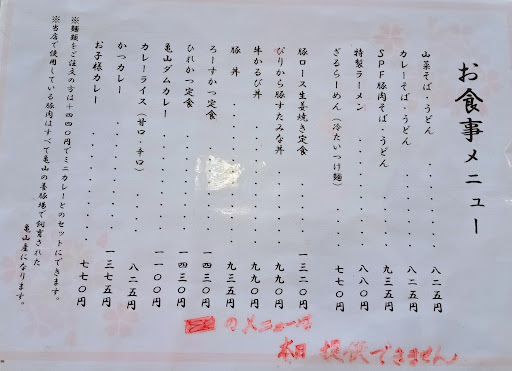 お食事メニュー
山菜そば・うどん 八二五円
カレーそば・うどん 八二五円
SPF豚肉そば・うどん 九三五円
特製ラーメン 八八〇円
ざるらーめん(冷たいつけ麺) 七七〇円
豚ロース生姜焼き定食 一三二〇円
ぴりから豚すたみな丼 九九〇円
牛かるび丼 九九〇円
豚丼 九三五円
ろーすかつ定食 一四三〇円
ひれかつ定食 一四三〇円
亀山ダムカレー 一一〇〇円
カレーライス(甘口・辛口) 八二五円
かつカレー 一三七五円
お子様カレー 七七〇円
※麺類をご注文の方は+四四〇円でミニカレーとのセットにできます。
※当店で使用している豚肉はすべて亀山の養豚場で飼育された
亀山産になります。
のメニューは
本日 提供できません